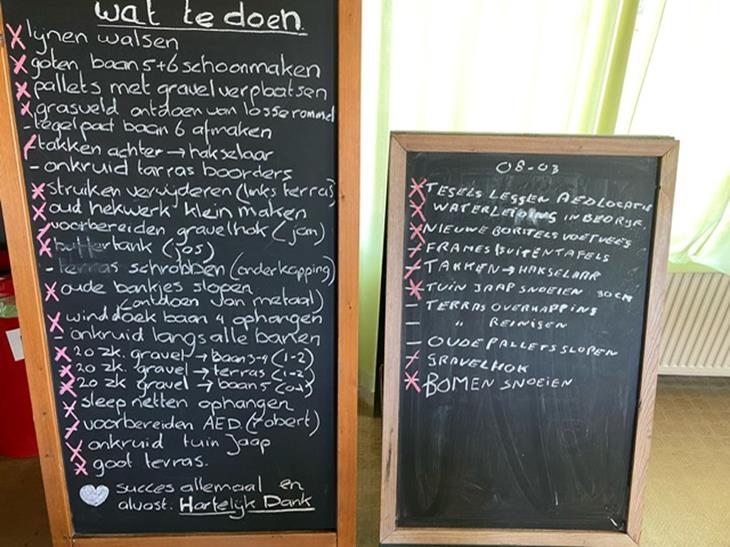 wat te doen
x lijnen walsen
x goten baan 5+6 schoonmaken
x pallets met gravel verplaatsen
x grasveld ontdoen van losse rommel
- tegelpad baan 6 afmaken
/ takken achter → hakselaar
- onkruid tarras boorders
x struiken verwijderen (links terras)
x oud hekwerk klein maken
/ voorbereiden gravelhok (jan)
x tank (jos)
- terras schrobben (onderkapping)
x oude bankjes slopen
(ontdoen van metaal)
x winddoek baan 4 ophangen
- onkruid langs alle banen
x 20 zk. gravel → baan 3-4 (1-2)
x 20 zk. gravel → terras (1-2)
x 20 zk gravel → baan 5 (0-1)
x sleepnetten ophangen
/ voorbereiden AED. (robert)
x onkruid tuin Jaap
x goot terras.
succes allemaal en
alvast. Hartelijk Dank
08-03
x TEGELS LEGGEN AED LOCATIE
x WATERLEIDING IN BEDRIJF.
x NIEUWE BORSTELS VOETVEEG
/ FRAMES BUITENTAFELS
/ TAKKEN → HAKSELAAR
x TUIN JAAP SNOEIEN 30 CM
- TERRAS OVERKAPPING
- " REINIGEN
- OUDE PALLETS SLOPEN
/ GRAVELHOK
x BOMEN SNOEIEN